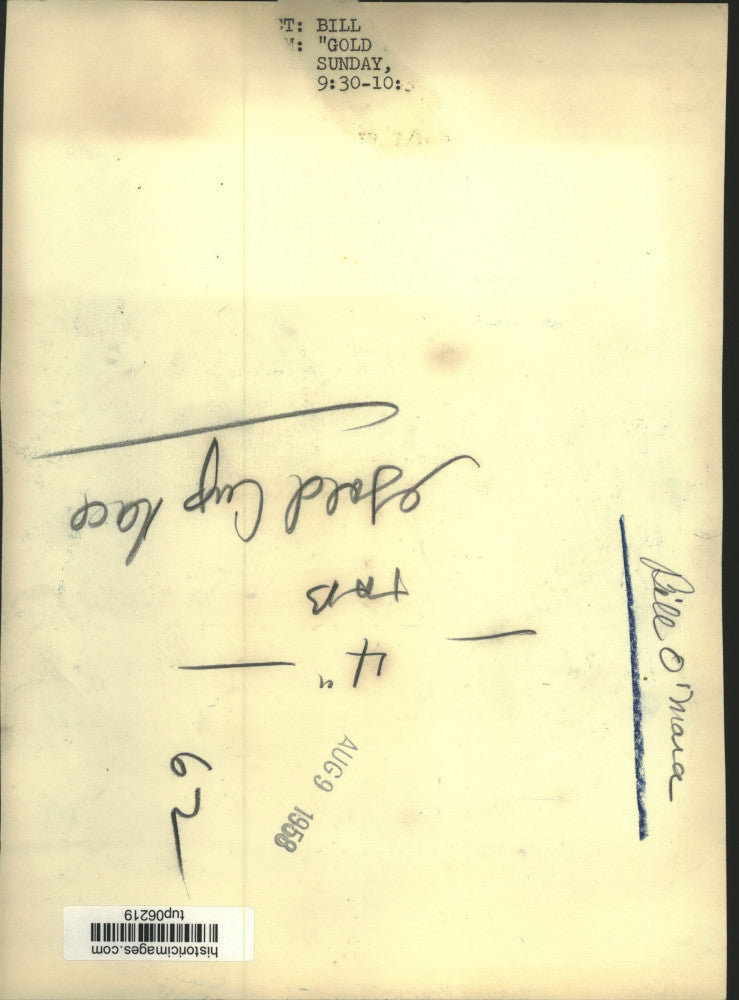 CT: BILL
M: "GOLD
SUNDAY,
9:30-10:3
Gold Cup Race
TAB
4"
62
AUG 9 1958
Bill O'Mara
historicimages.com
tup06219